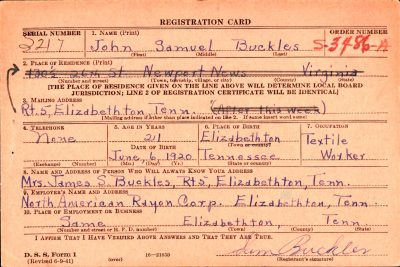 REGISTRATION CARD
SERIAL NUMBER 1. NAME (Print) ORDER NUMBER
S217 John Samuel Buckles S-3486-A
(First) (Middle) (Last)
2. PLACE OF RESIDENCE (Print)
1305 26th St Newport News Virginia
(Number and street) (Town, township, village, or city) (County) (State)
[THE PLACE OF RESIDENCE GIVEN ON THE LINE ABOVE WILL DETERMINE LOCAL BOARD
JURISDICTION; LINE 2 OF REGISTRATION CERTIFICATE WILL BE IDENTICAL]
3. MAILING ADDRESS
Rt. 5, Elizabethton, Tenn. (After this week)
[Mailing address if other than place indicated on line 2. If same insert word same]
4. TELEPHONE 5. AGE IN YEARS 6. PLACE OF BIRTH 7. OCCUPATION
None 21 Elizabethton Textile
DATE OF BIRTH (Town or county)
June, 6, 1920 Tennessee Worker
(Exchange) (Number) (Mo.) (Day) (Yr.) (State or country)
8. NAME AND ADDRESS OF PERSON WHO WILL ALWAYS KNOW YOUR ADDRESS
Mrs. James S. Buckles, Rt 5, Elizabethton, Tenn.
9. EMPLOYER'S NAME AND ADDRESS
North American Rayon Corp. Elizabethton, Tenn.
10. PLACE OF EMPLOYMENT OR BUSINESS
Same Elizabethton, Tenn
(Number and street or R. F. D. number) (Town) (County) (State)
I AFFIRM THAT I HAVE VERIFIED ABOVE ANSWERS AND THAT THEY ARE TRUE.
D. S. S. Form 1
(Revised 6-9-41) (over) 16—21630 Buckles
(Registrant's signature)